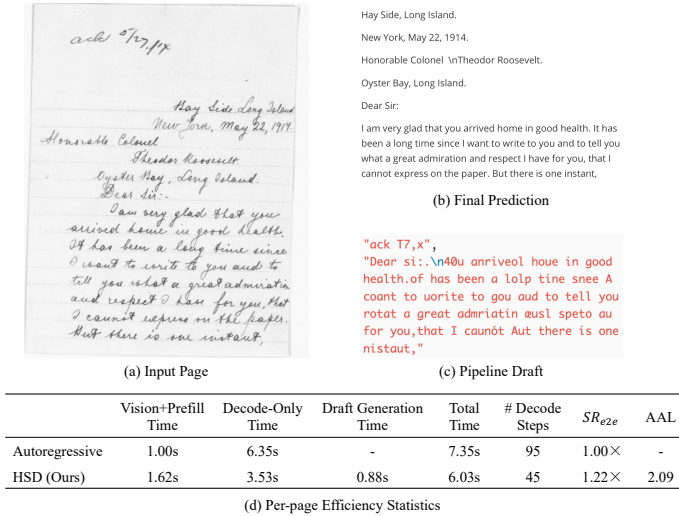 ack 5/27/14
Bay Side Long Island
New York, May 22, 1914.
Honorable Colonel
Theodor Roosevelt.
Oyster Bay, Long Island.
Dear Sir:-
I am very glad that you
arrived home in good health.
It has been a long time since
I want to write to you and to
tell you what a great admiration
and respect I have for you, that
I cannot express on the paper.
But there is one instant,
(a) Input Page
Hay Side, Long Island.
New York, May 22, 1914.
Honorable Colonel \nTheodor Roosevelt.
Oyster Bay, Long Island.
Dear Sir:
I am very glad that you arrived home in good health. It has
been a long time since I want to write to you and to tell you
what a great admiration and respect I have for you, that I
cannot express on the paper. But there is one instant,
(b) Final Prediction
"ack T7,x",
"Dear si:.\n40u anriveol houe in good
health.of has been a lolp tine snee A
coant to uorite to gou aud to tell you
rotat a great admriatin œusl speto au
for you,that I caunót Aut there is one
nistaut,"
(c) Pipeline Draft
Vision+Prefill Time Decode-Only Time Draft Generation Time Total Time # Decode Steps SRe2e AAL
Autoregressive 1.00s 6.35s - 7.35s 95 1.00× -
HSD (Ours) 1.62s 3.53s 0.88s 6.03s 45 1.22× 2.09
(d) Per-page Efficiency Statistics